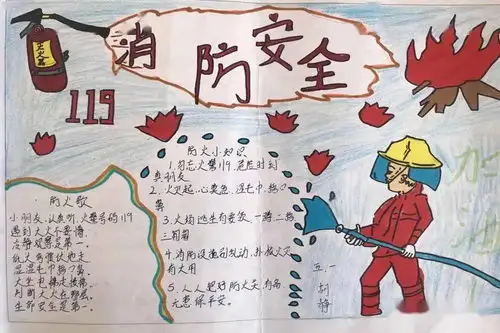 灭火器
消防安全
119
防火小知识
1.勿忘火警119.危险时刻
真朋友
2.火灾起,心莫急,湿毛巾,捂口
鼻
3.火场逃生有秘诀,一蹲二捂
三匍匐
4.消防设施别乱动,扑救火灾
有大用
5.人人把好防火关,有备
无患保平安。
防火歌
小朋友,认真听,火警号码119
遇到大火不要慌
冷静观察是第一。
低头弯腰快快走
湿湿毛巾捂口鼻。
大生电梯走楼梯
判断大火在哪层
生命安全是第一。
五.一
胡静